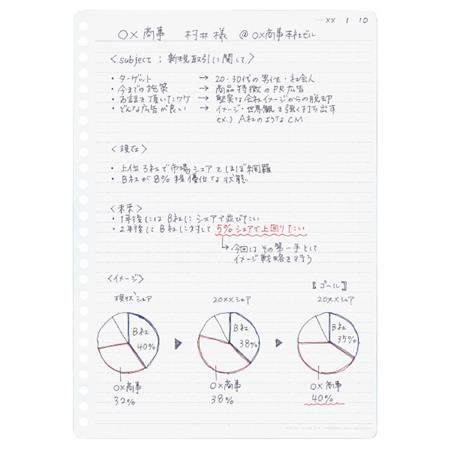 XX 1 10
〇×商事 村井様 @〇×商事本社ビル
<subject：新規取引に関して>
・ターゲット → 20・30代の男性・社会人
・今までの施策 → 商品特徴のPR広告
・お話を頂いたワケ → 堅実な会社イメージからの脱却
・どんな広告が良い → イメージ・世界観を強く打ち出す
ex.) A社のようなCM
<現在>
・上位3社で市場シェアをほぼ網羅
・B社が8%程優位な状態
<未来>
・1年後にはB社にシェアで並びたい
・2年後にB社に対して5%シェアで上回りたい
→今回はその第一手として
イメージ戦略を行う
<イメージ>
【ゴール】
現状シェア 20××シェア 20××シェア
B社 40% B社 38% B社 35%
〇×商事 〇×商事 〇×商事
32% 38% 40%